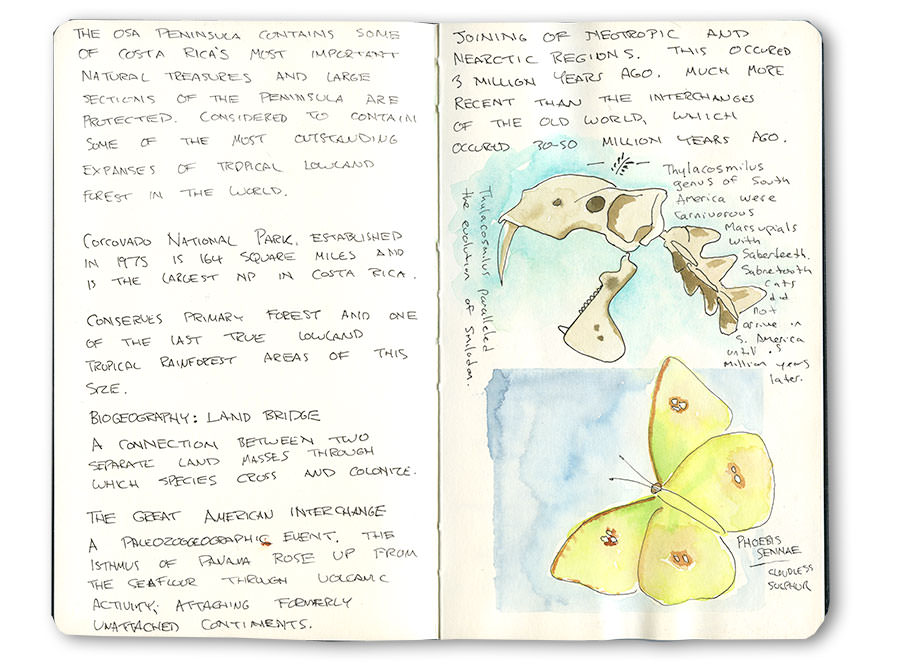 THE OSA PENINSULA CONTAINS SOME
OF COSTA RICA'S MOST IMPORTANT
NATURAL TREASURES AND LARGE
SECTIONS OF THE PENINSULA ARE
PROTECTED. CONSIDERED TO CONTAIN
SOME OF THE MOST OUTSTANDING
EXPANSES OF TROPICAL LOWLAND
FOREST IN THE WORLD.
CORCOVADO NATIONAL PARK, ESTABLISHED
IN 1975 IS 164 SQUARE MILES AND
IS THE LARGEST NP IN COSTA RICA.
CONSERVES PRIMARY FOREST AND ONE
OF THE LAST TRUE LOWLAND
TROPICAL RAINFOREST AREAS OF THIS
SIZE.
BIOGEOGRAPHY: LAND BRIDGE
A CONNECTION BETWEEN TWO
SEPARATE LAND MASSES THROUGH
WHICH SPECIES CROSS AND COLONIZE.
THE GREAT AMERICAN INTERCHANGE
A PALEOZOOGEOGRAPHIC EVENT. THE
ISTHMUS OF PANAMA ROSE UP FROM
THE SEAFLOOR THROUGH VOLCANIC
ACTIVITY, ATTACHING FORMERLY
UNATTACHED CONTINENTS.
JOINING OF NEOTROPIC AND
NEARCTIC REGIONS. THIS OCCURED
3 MILLION YEARS AGO. MUCH MORE
RECENT THAN THE INTERCHANGES
OF THE OLD WORLD, WHICH
OCCURED 30-50 MILLION YEARS AGO.
Thylacosmilus
genus of South
America were
Carnivorous
Marsupials
with
Saberteeth.
Sabretooth
cats
did
not
arrive in
S. America
until .5
million years
later.
Thylacosmilus paralleled
the evolution of Smilodon.
PHOEBIS
SENNAE
CLOUDLESS
SULPHUR